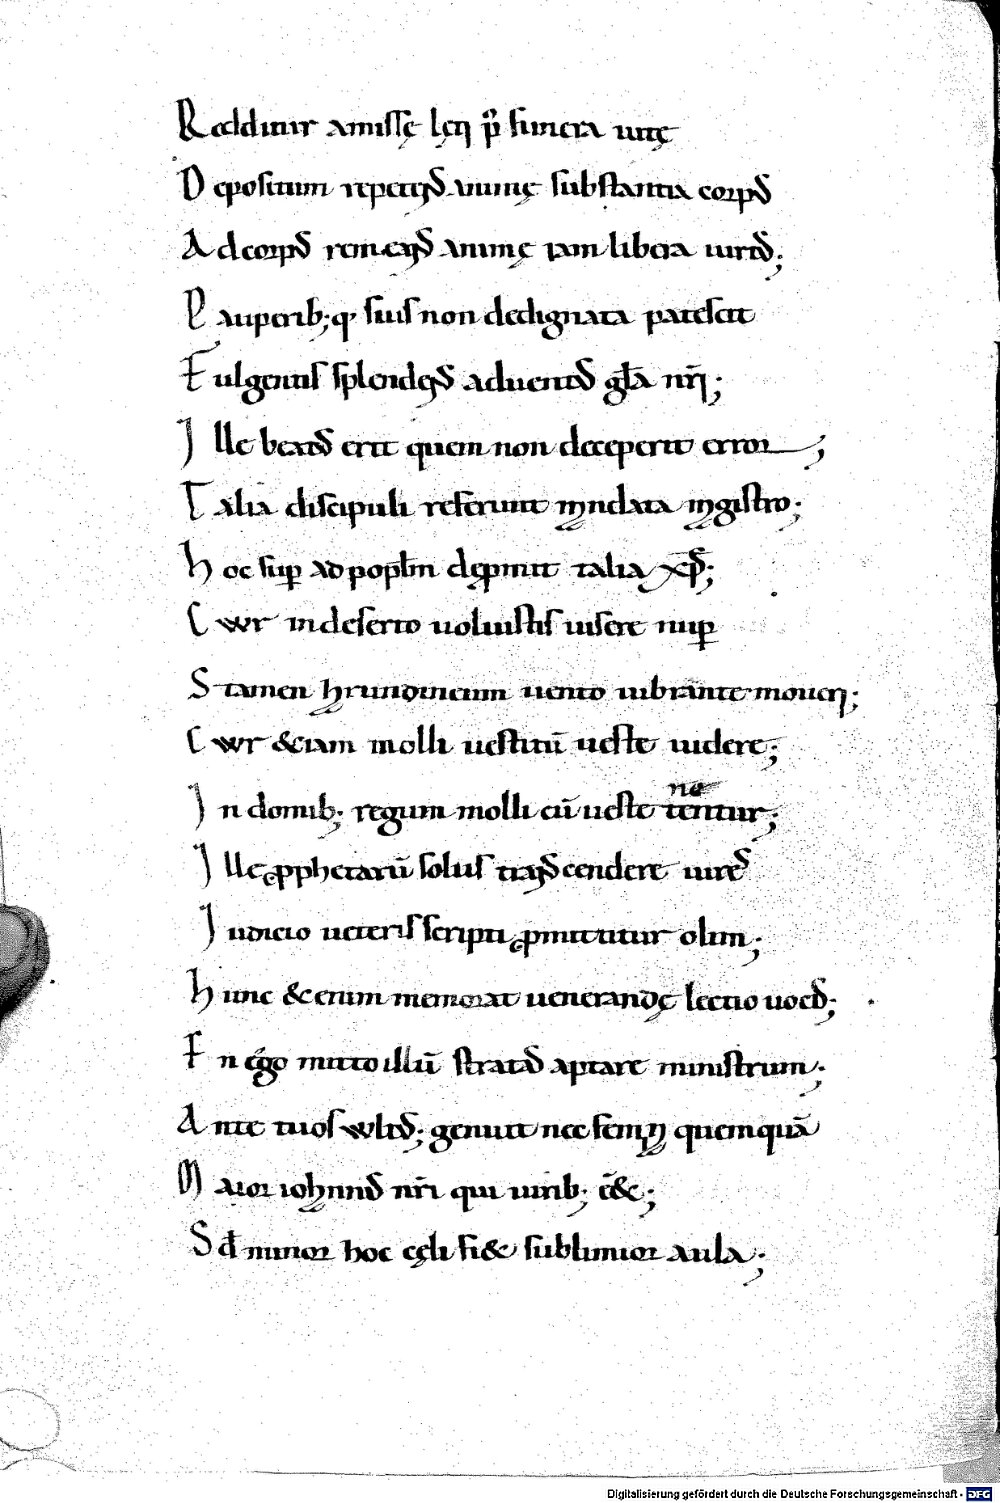 Redditur amissę lęti p̄ funera uitę
Depositum repetens animę substantia corpus
Ad corpus remeans animę iam libera uirtus;
Pauperib;q; suis non dedignata patescit
Fulgentis splendens aduentus gl̄a nr̄i;
Ille beatus erit quem non deceperit error;
Talia discipuli referunt mandata magistro;
Hoc sup̄ ad popl̄m dep̱mit talia xp̄s;
Cwr in deserto uoluistis uisere nup̄
Stamen harundineum uento uibrante moueri;
Cwr &iam molli uestitū ueste uidere;
In domib; regum molli cū ueste tenentur;
Ille ꝓphetarū solus transcendere uires
Iudicio ueteris scripti ꝓmittitur olim;
Hunc &enim memorat uenerandę lectio uocis;
En ego mitto illū stratas aptare ministrum;
Ante tuos wltus; genuit nec femina quemquā
Maior iohannis nr̄i qui uirib; eē&;
Sed minor hoc cęli fi& sublimior aula;
Digitalisierung gefördert durch die Deutsche Forschungsgemeinschaft - DFG